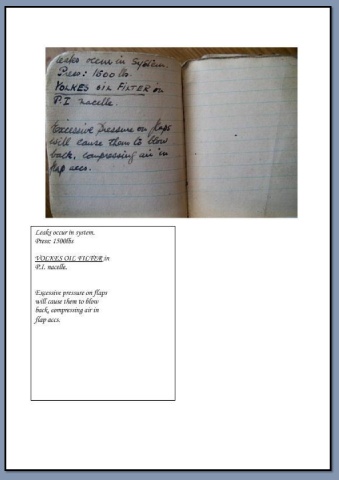 Leaks occur in system.
Press: 1500 lbs.
VOLKES OIL FILTER in
P.I. nacelle.
Excessive pressure on flaps
will cause them to blow
back, compressing air in
flap accs.
Leaks occur in system.
Press: 1500lbs
VOLKES OIL FILTER in
P.I. nacelle.
Excessive pressure on flaps
will cause them to blow
back, compressing air in
flap accs.